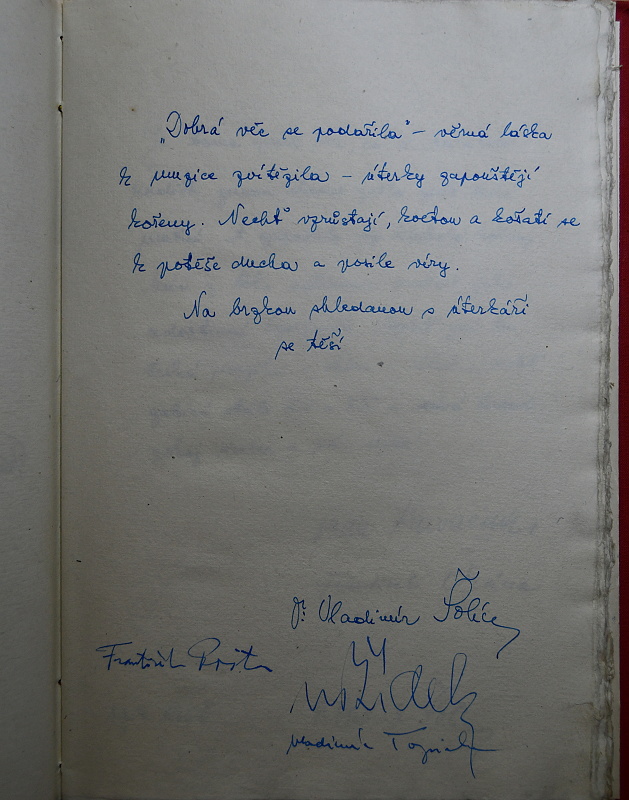 „Dobrá věc se podařila" – věrná láska
k muzice zvítězila – úterky zapouštějí
kořeny. Nechť vzrůstají, kvetou a košatí se
k potěše ducha a posile víry.
Na brzkou shledanou s úterkáři
se těší
Dr. Vladimír Šolín
František Pošta
Vladimír